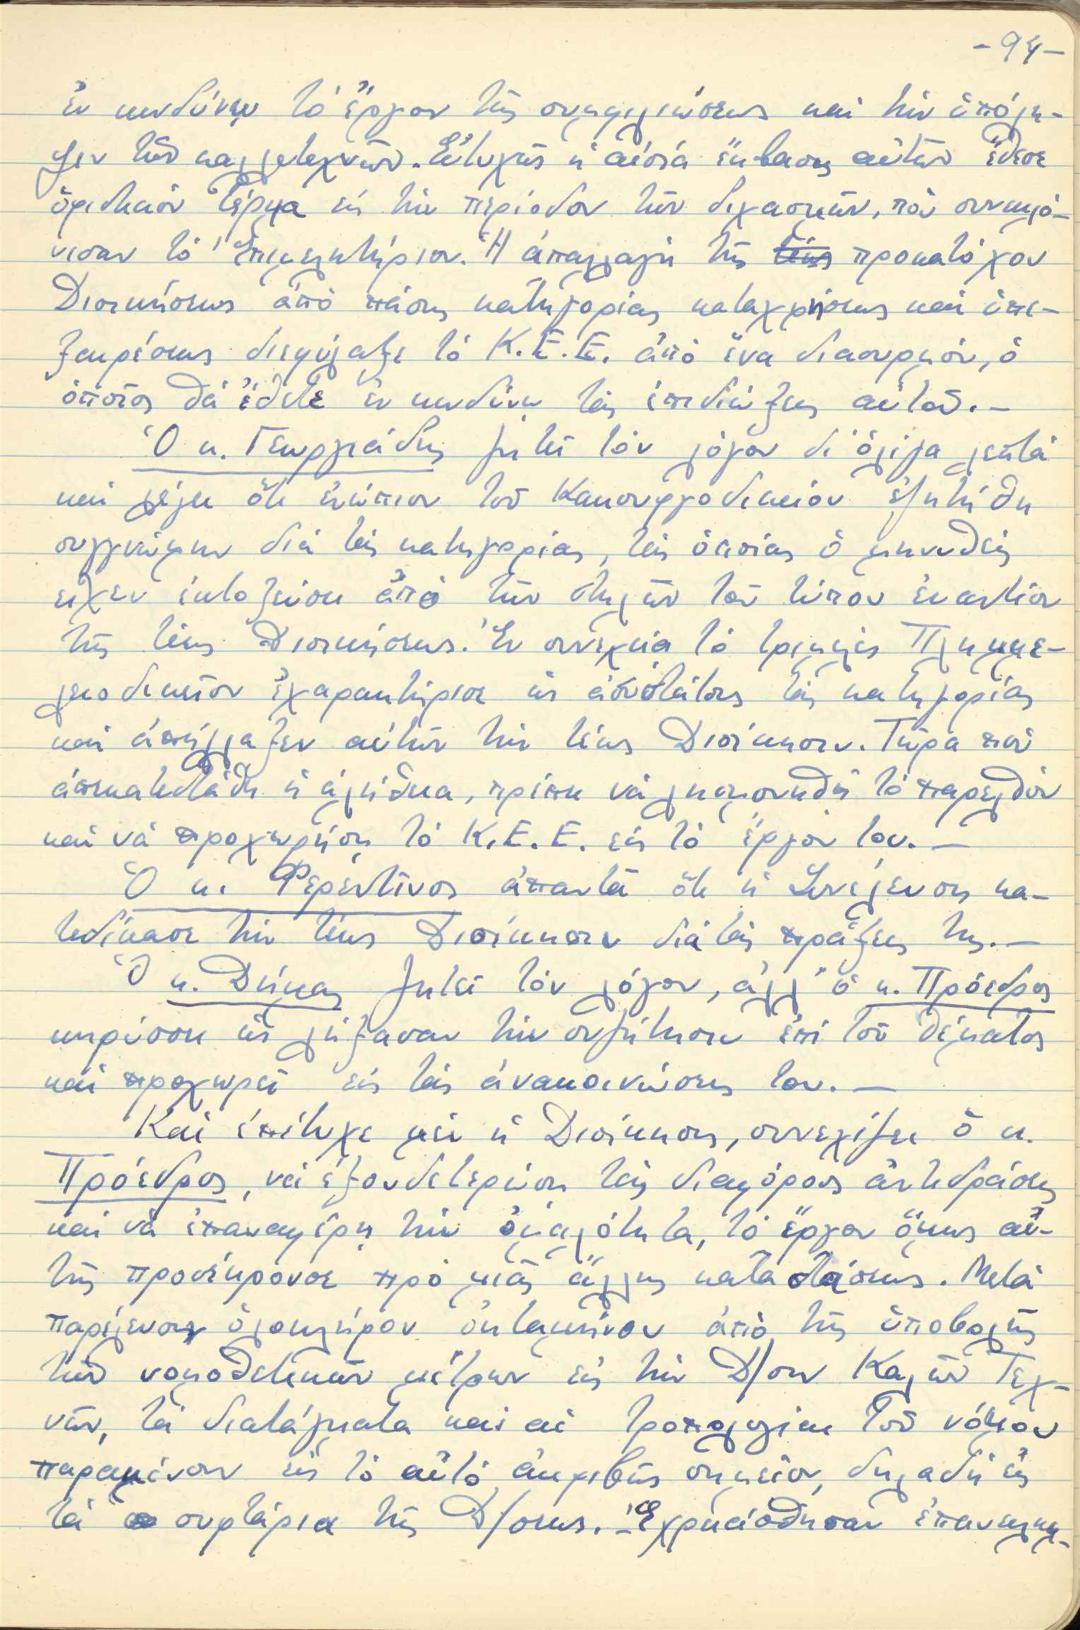 -94-
ἐν κινδύνῳ τό ἔργον τῆς συμφιλιώσεως καί τήν ὑπόλη-
ψιν τῶν καλλιτεχνῶν. Εὐτυχῶς ἡ αἰσία ἔκβασις αὐτῶν ἔθεσε
ὁριστικόν τέρμα εἰς τήν περίοδον τῶν διχασμῶν, πού συνεκλό-
νισαν τό Ἐπιμελητήριον. Ἡ ἀπαλλαγή τῆς προκατόχου
Διοικήσεως ἀπό πάσης κατηγορίας καταχρήσεως καί ὑπε-
ξαιρέσεως διεφύλαξε τό Κ.Ε.Ε. ἀπό ἕνα διασυρμόν, ὁ
ὁποῖος θά ἔθετε ἐν κινδύνῳ τάς ἐπιδιώξεις αὐτοῦ.-
Ὁ κ. Γεωργιάδης ζητεῖ τόν λόγον δι' ὀλίγα λεπτά
καί λέγει ὅτι ἐνώπιον τοῦ Κακουργοδικείου ἐζητήθη
συγγνώμην διά τάς κατηγορίας, τάς ὁποίας ὁ μηνυθείς
εἶχεν ἐκτοξεύσει ἀπό τῶν στηλῶν τοῦ τύπου ἐναντίον
τῆς τέως Διοικήσεως. Ἐν συνεχείᾳ τό τριμελές Πλημμε-
λειοδικεῖον ἐχαρακτήρισε ὡς ἀσυστάτους τάς κατηγορίας
καί ἀπήλλαξεν αὐτῶν τήν τέως Διοίκησιν. Τώρα πού
ἀπεκατεστάθη ἡ ἀλήθεια, πρέπει νά λησμονηθῇ τό παρελθόν
καί νά προχωρήσῃ τό Κ.Ε.Ε. εἰς τό ἔργον του.-
Ὁ κ. Φερεντῖνος ἀπαντᾶ ὅτι ἡ Συνέλευσις κα-
τεδίκασε τήν τέως Διοίκησιν διά τάς πράξεις της.-
Ὁ κ. Δήμας ζητεῖ τόν λόγον, ἀλλ' ὁ κ. Πρόεδρος
κηρύσσει ὡς λήξασαν τήν συζήτησιν ἐπί τοῦ θέματος
καί προχωρεῖ εἰς τάς ἀνακοινώσεις του.-
Καί ἐπέτυχε μέν ἡ Διοίκησις, συνεχίζει ὁ κ.
Πρόεδρος, νά ἐξουδετερώσῃ τάς διαφόρους ἀντιδράσεις
καί νά ἐπαναφέρῃ τήν ὁμαλότητα, τό ἔργον ὅμως αὐ-
τῆς προσέκρουσε πρό μιᾶς ἄλλης καταστάσεως. Μετά
παρέλευσιν ὁλοκλήρου ὀκταμήνου ἀπό τῆς ὑποβολῆς
τῶν νομοθετικῶν μέτρων εἰς τήν Δ/σιν Καλῶν Τεχ-
νῶν, τά διατάγματα καί αἱ τροπολογίαι τοῦ νόμου
παραμένουν εἰς τό αὐτό ἀκριβῶς σημεῖον, δηλαδή εἰς
τά συρτάρια τῆς Δ/σεως. Ἐχρειάσθησαν ἐπανειλημ-